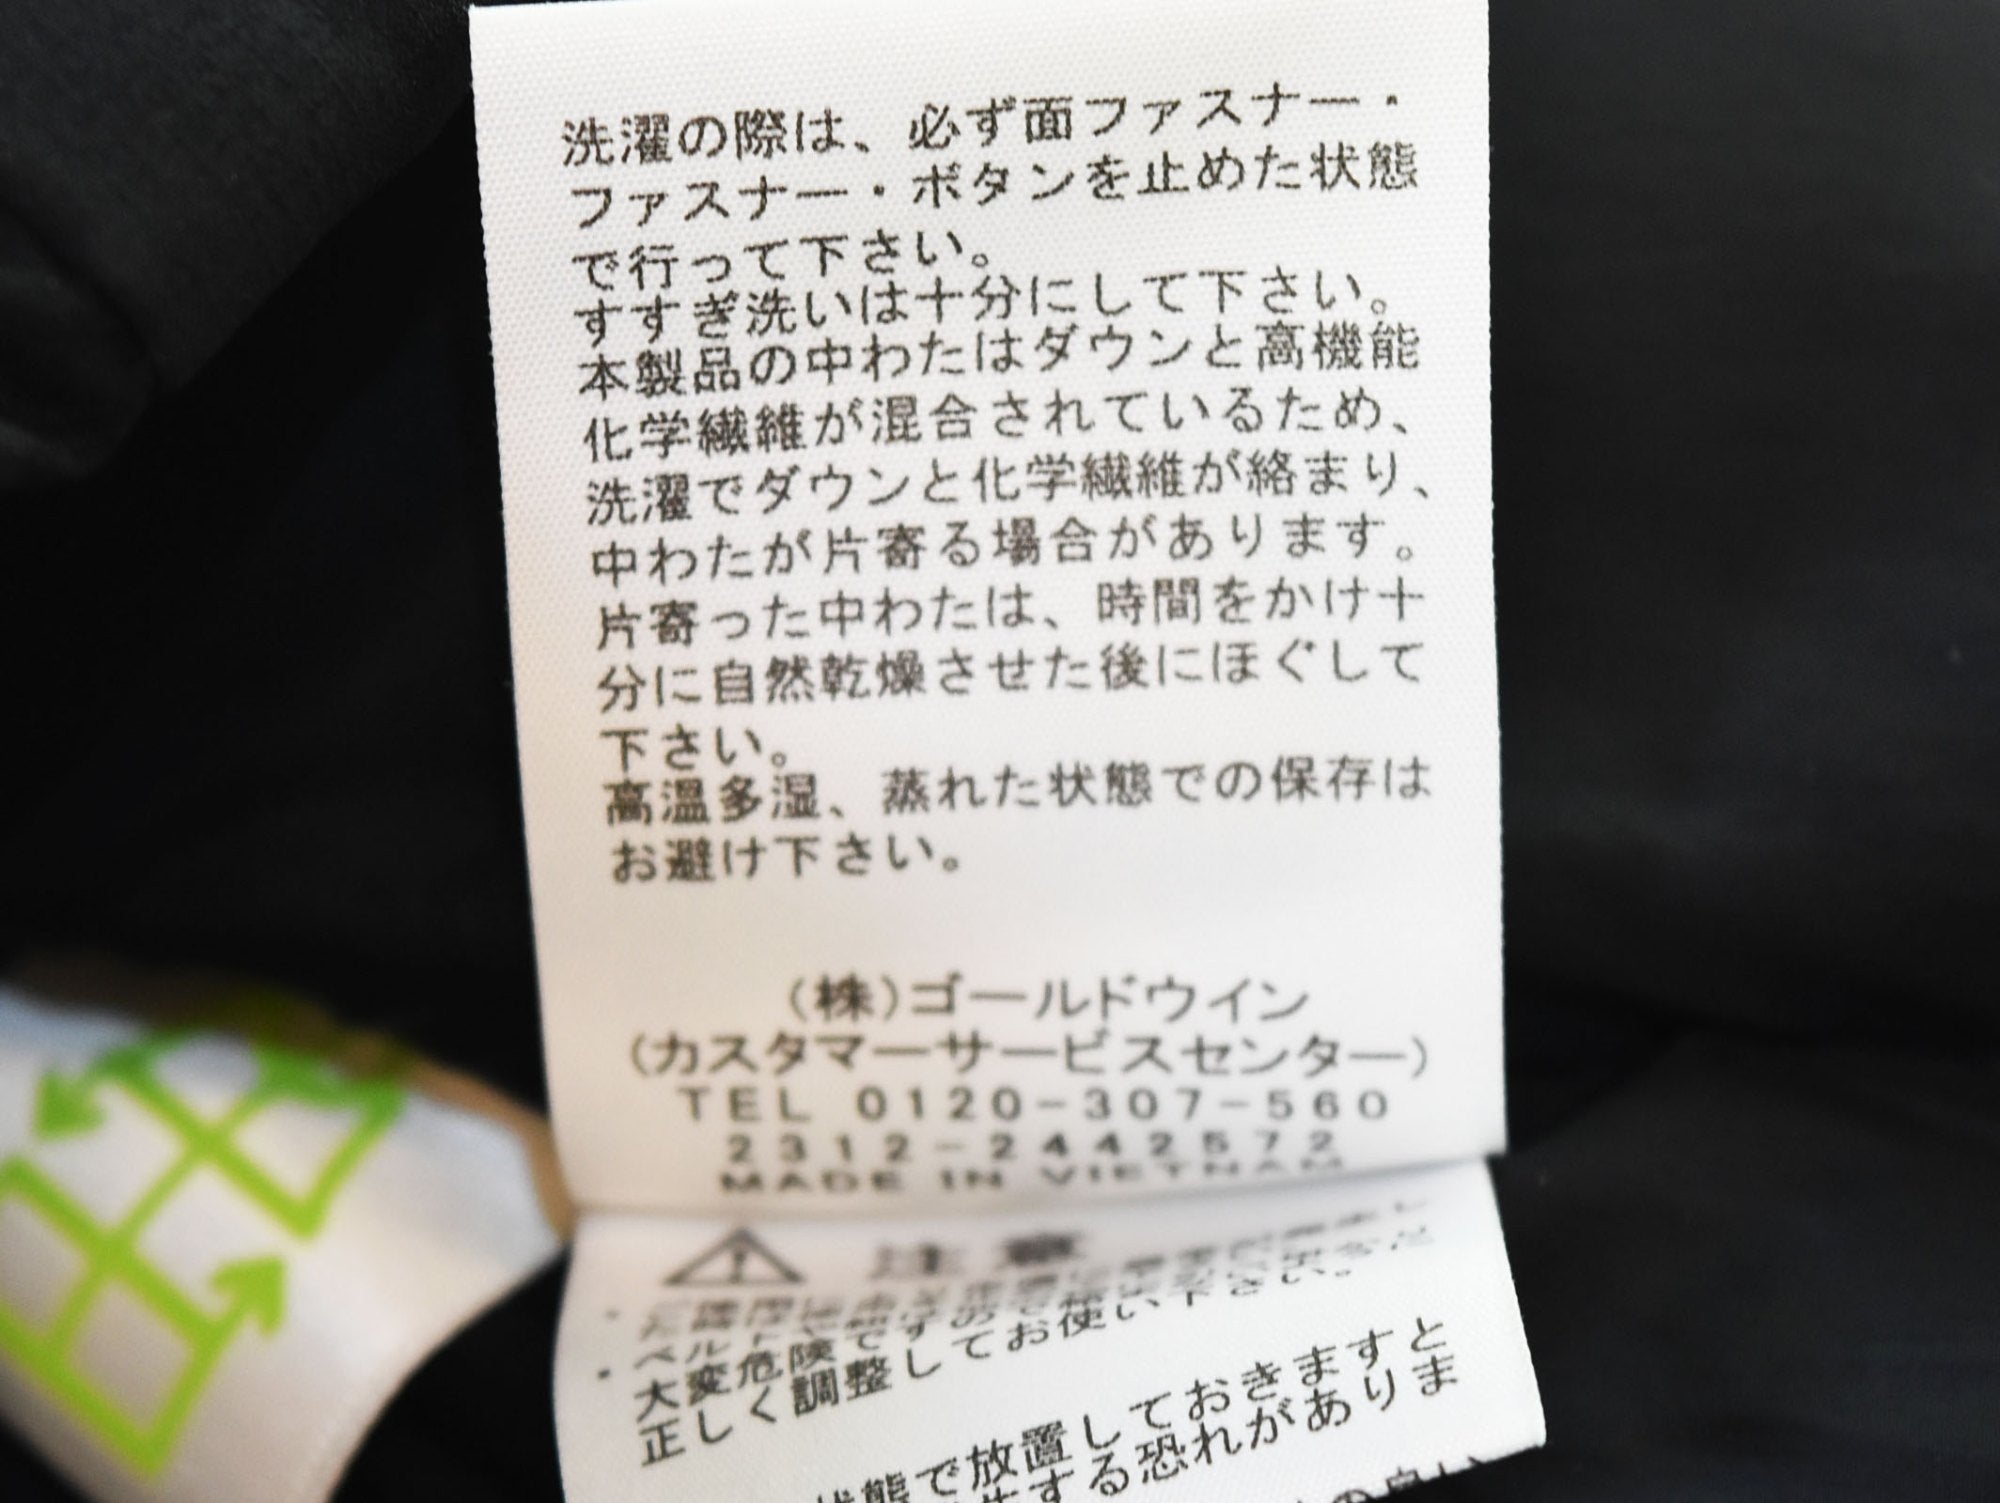 洗濯の際は、必ず面ファスナー・
ファスナー・ボタンを止めた状態
で行って下さい。
すすぎ洗いは十分にして下さい。
本製品の中わたはダウンと高機能
化学繊維が混合されているため、
洗濯でダウンと化学繊維が絡まり、
中わたが片寄る場合があります。
片寄った中わたは、時間をかけ十
分に自然乾燥させた後にほぐして
下さい。
高温多湿、蒸れた状態での保存は
お避け下さい。
(株)ゴールドウイン
(カスタマーサービスセンター)
TEL 0120-307-560
2312-2442572
MADE IN VIETNAM
注意
大変危険ですので
正しく調整してお使い下さい。
状態で放置しておきますと
する恐れがありま